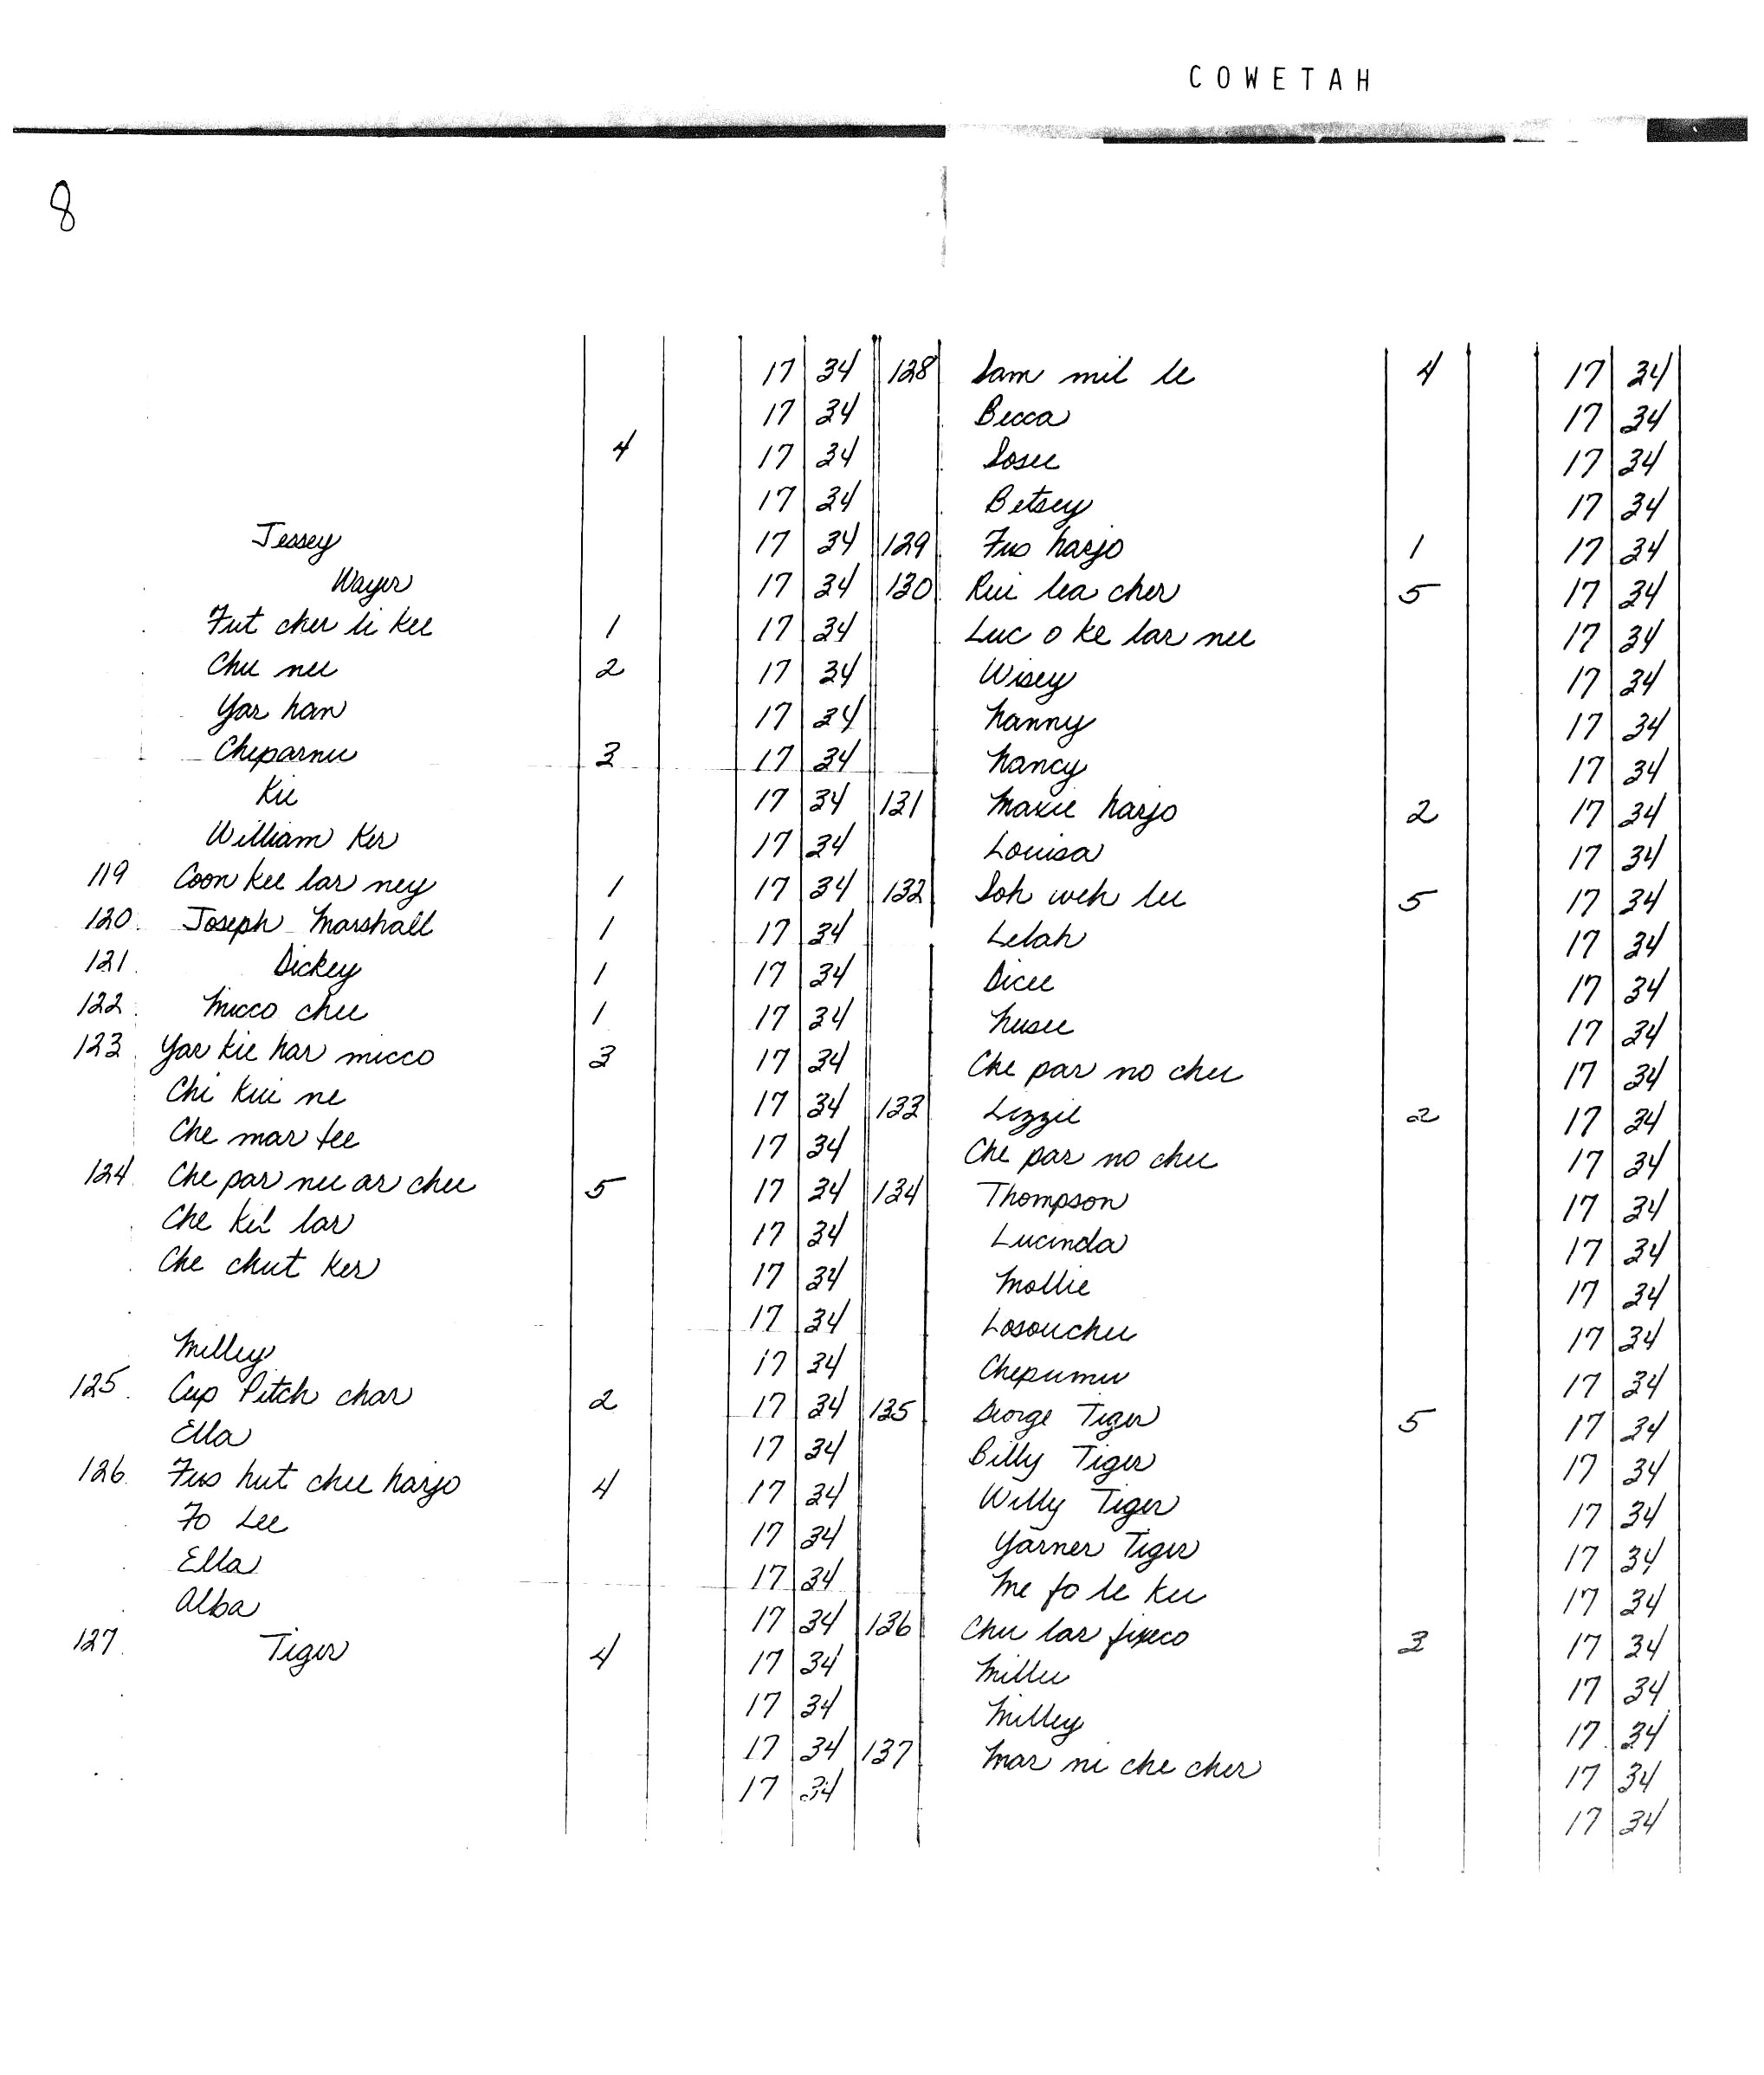 COWETAH
8
17 34
17 34
4 17 34
17 34
Jessey 17 34
Wayer 17 34
Fut cher li kee 1 17 34
Chu nee 2 17 34
Yar han 17 34
Cheparnee 3 17 34
Kee 17 34
William Ker 17 34
119 Coon kee lar ney 1 17 34
120 Joseph Marshall 1 17 34
121 Dickey 1 17 34
122 Micco chee 1 17 34
123 Yar kie har micco 3 17 34
Chi kee ne 17 34
Che mar tee 17 34
124 Che par nee ar chee 5 17 34
Che kil lar 17 34
Che chut ker 17 34
17 34
Milley 17 34
125 Cup Pitch char 2 17 34
Ella 17 34
126 Fus hut chee harjo 4 17 34
Fo Lee 17 34
Ella 17 34
Alba 17 34
127 Tiger 4 17 34
17 34
17 34
17 34
128 Sam mil le 4 17 34
Becca 17 34
Sosee 17 34
Betsey 17 34
129 Fus harjo 1 17 34
130 lea cher 5 17 34
Luc o ke lar nee 17 34
Wisey 17 34
Nanny 17 34
Nancy 17 34
131 Maxie harjo 2 17 34
Louisa 17 34
132 Soh weh lee 5 17 34
Lelah 17 34
Dicee 17 34
Nusee 17 34
Che par no chee 17 34
133 Lizzie 2 17 34
Che par no chee 17 34
134 Thompson 17 34
Lucinda 17 34
Mollie 17 34
Losouchee 17 34
Chepumu 17 34
135 George Tiger 5 17 34
Billy Tiger 17 34
Willy Tiger 17 34
Yarner Tiger 17 34
Me fo le kee 17 34
136 Chu lar fixeco 3 17 34
Millee 17 34
Milley 17 34
137 Mar ni che cher 17 34
17 34